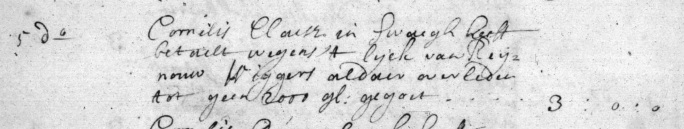 5 do Cornelis Claesz in Swaegh heeft
betaelt wegens 't lijck van Reij=
nouw Wiggers aldaer overleden
tot geen 2000 gl: gegoet - - - - 3 : 0 : 0
Cornelis